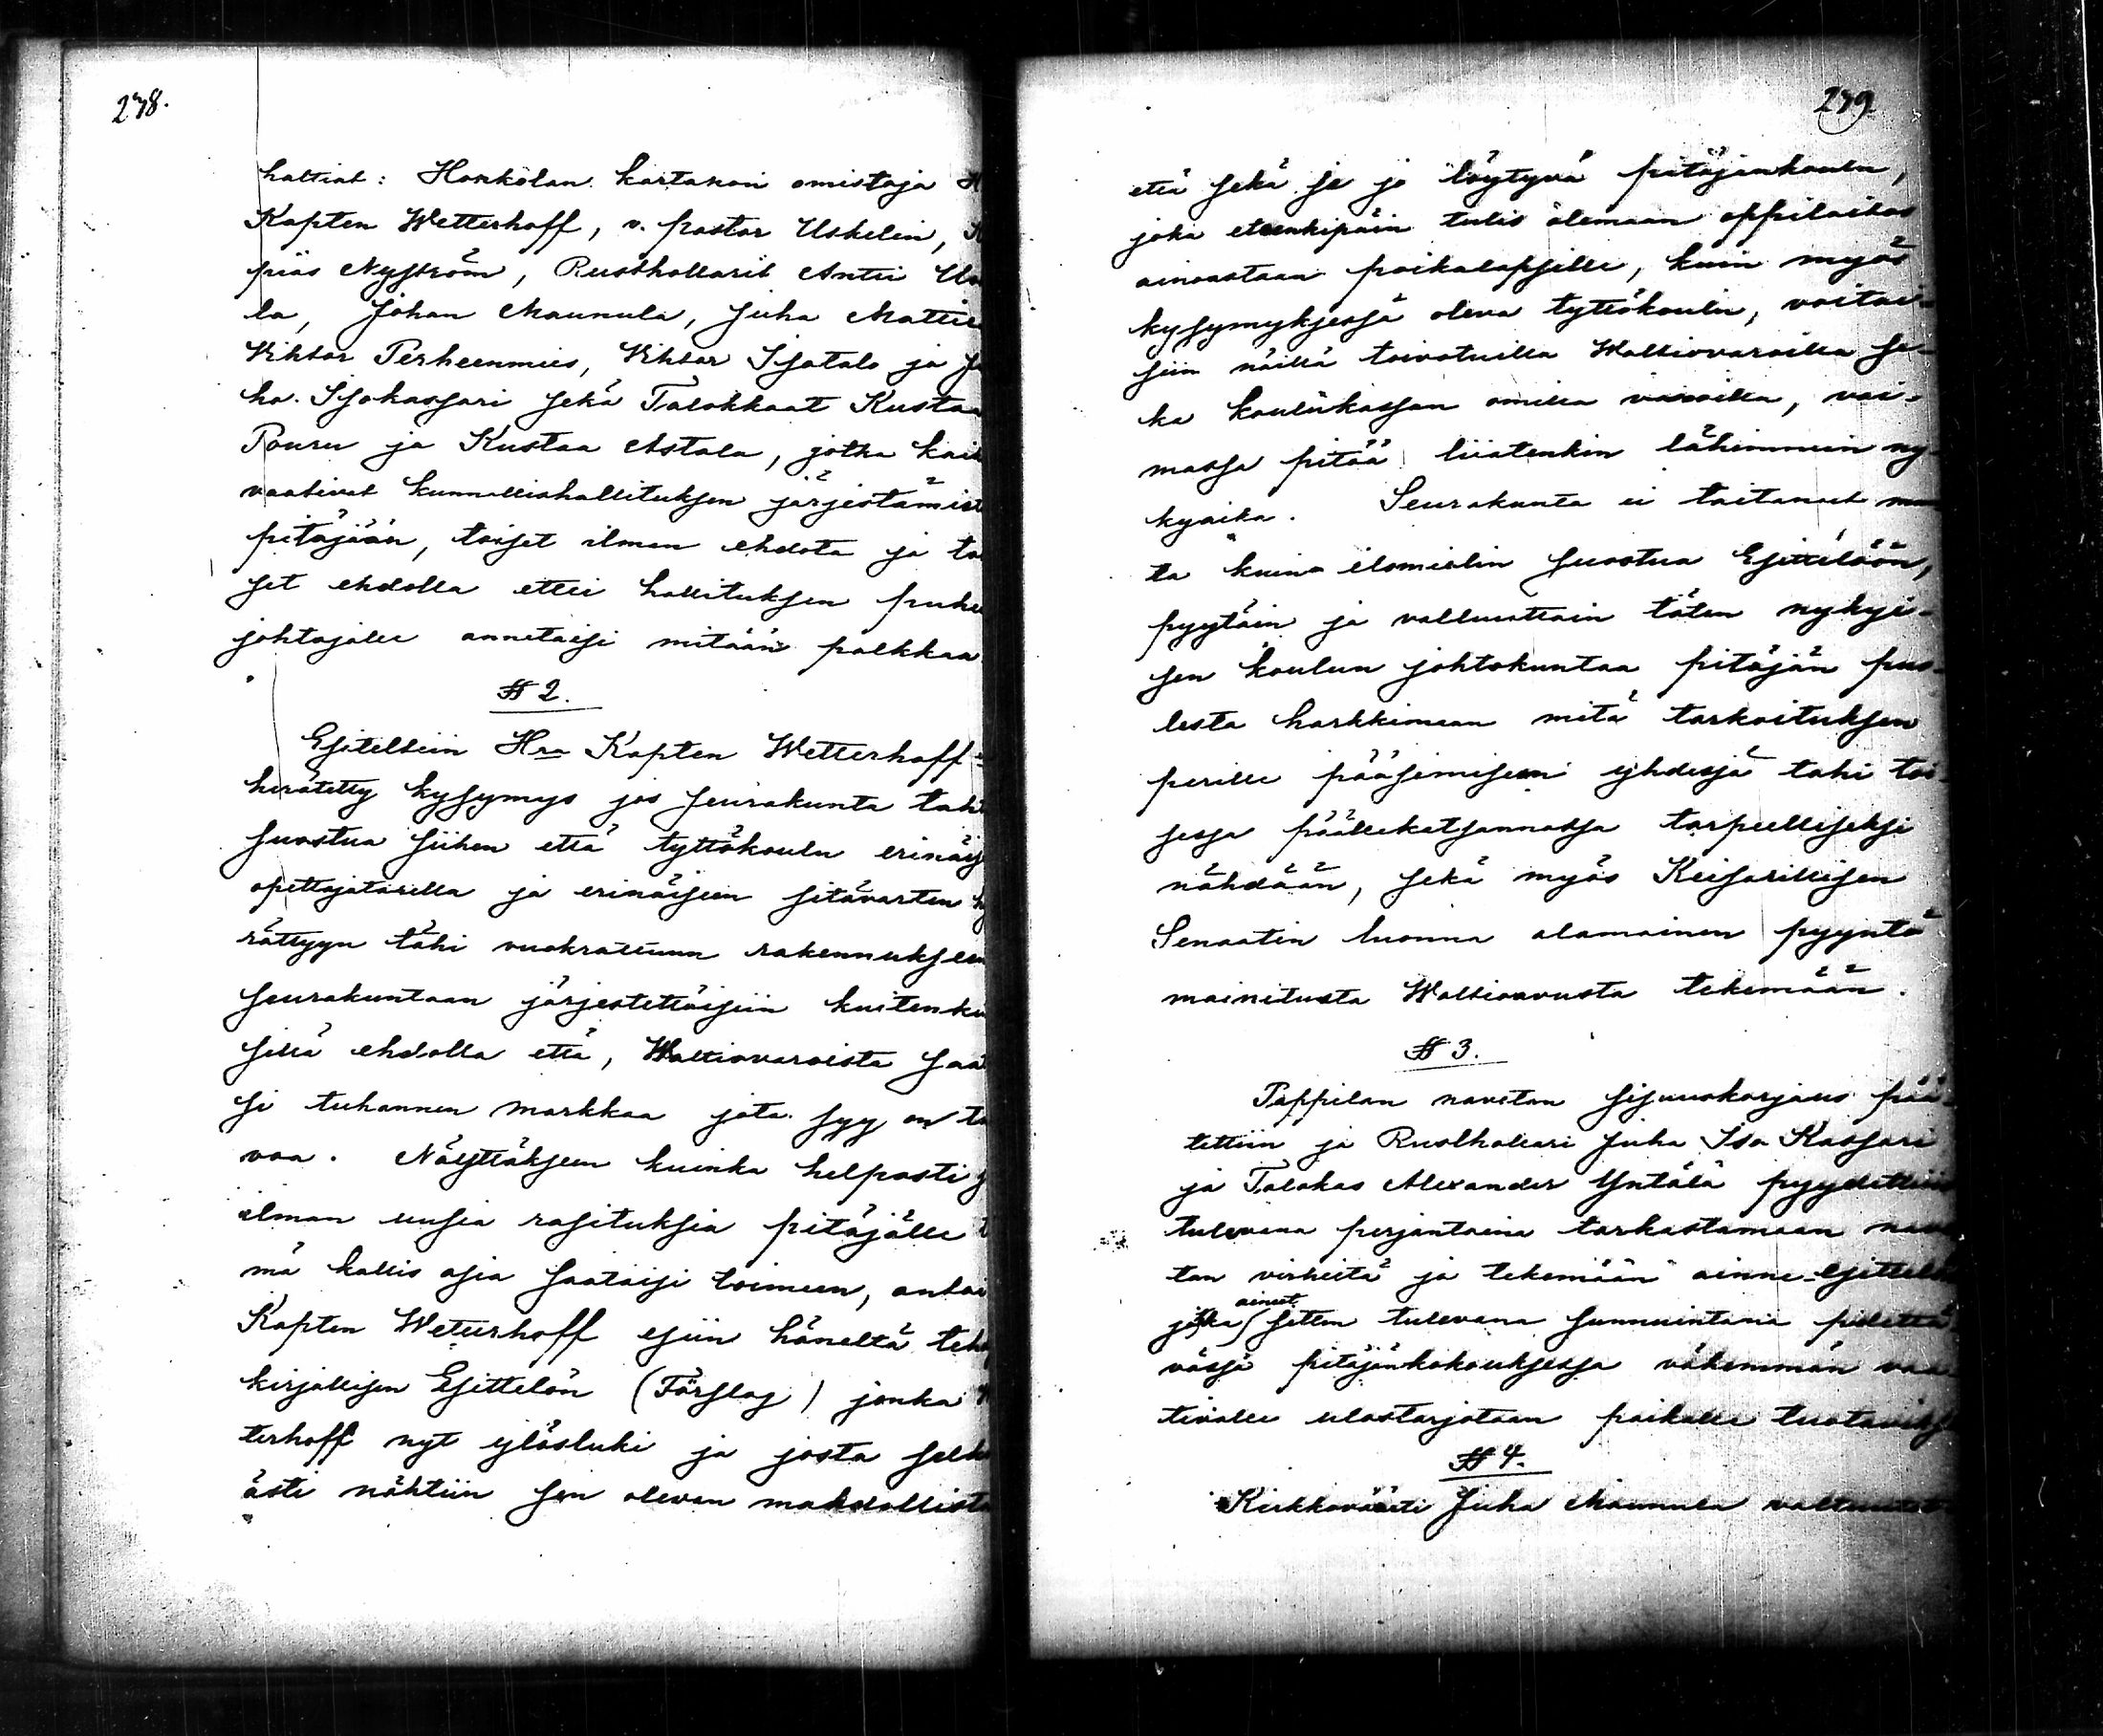 278.
haltiat: Honkolan kartanon omistaja H
Kapten Wetterhoff, v. pastor Uskelin, K
piäs Nyström, Rusthollarit Antti Uo
la, Johan Maunula, Juha Mattil
Viktor Perheenmies, Viktor Isotalo ja Ju
ha. Isokassari sekä Talokkaat Kustaa
Pouru ja Kustaa Astala, jotka kaik
vaativat kunnallishallituksen järjestämist
pitäjään, toiset ilman ehdota ja to
set ehdolla ettei hallituksen puhe
johtajalle annetaisi mitään palkkaa
§ 2.
Esiteltiin Hra Kapten Wetterhoff
herätetty kysymys jos seurakunta taht
suostua siihen että tyttökoulu erinäis
opettajatarella ja erinäiseen sitävarten hy
rättyyn tähi vuokrattuun rakennukseen
seurakuntaan järjestettäisiin kuitenki
sillä ehdolla että, Waltiovaroista saa
si tuhannen markkaa jota syy on to
voa. Näyttäkseen kuinka helposti j
ilman uusia rasituksia pitäjälle t
mä kallis asia saataisi toimeen, antoi
Kapten Weterhoff esiin häneltä teh
kirjallisen Esittelön (Förslag) jonka W
terhoff nyt ylösluki ja josta selk
ästi nähtiin sen olevan mahdollista
279
että sekä se jo löytyvä pitäjänkoulu,
joka eteenkipäin tulis olemaan oppilaitos
ainoastaan poikalapsille, kuin myös
kysymyksessä oleva tyttökoulu, voitai-
siin näillä toivotuilla Waltiovaroilla se-
ka koulukassan omilla varoilla, voi-
massa pitää liiatenkin lähimmein ny-
kyaika. Seurakunta ei taitanut mu
ta kuin ilomielin suostua Esittelöön,
pyytäin ja valtuuttain täten nykyi-
sen koulun johtokuntaa pitäjän puo-
lesta harkkimaan mitä tarkoituksen
perille pääsemiseen yhdessä tahi toi-
sessa päällekatsannossa tarpeelliseksi
nähdään, sekä myös Keisarillisen
Senaatin luonna alamainen pyyntö
mainitusta Waltioavusta tekemään.
§ 3.
Pappilan navetan sisuuskorjaus pää-
tettiin ja Rusthollari Juha Iso Kassari
ja Talokas Alexander Yntälä pyydettiin
tulevana perjantaina tarkastamaan nave
tan virheitä ja tekemään ainne-Esittelön
jotka aineet sitten tulevana sunnuintania pidettä-
vässä pitäjänkokouksessa vähemmän vaa-
tivalle ulostarjotaan paikalle tuotaviksi
§ 4.
Kirkkoväärti Juha Maunula valtuutet